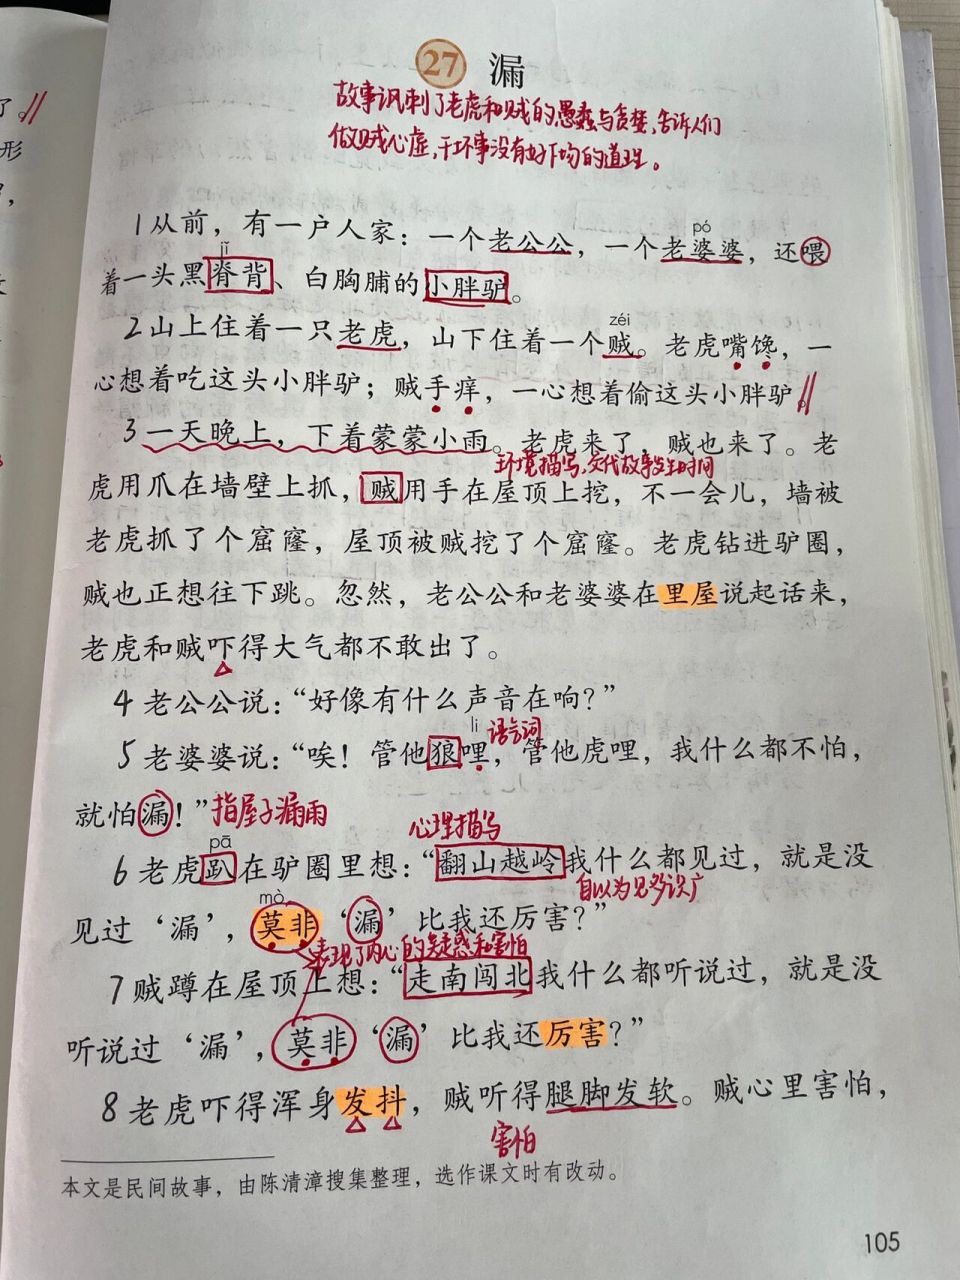 了。
形
27 漏
故事讽刺了老虎和贼的愚蠢与贪婪,告诉人们
做贼心虚,干坏事没有好下场的道理。
1 从前，有一户人家：一个老公公，一个老婆婆，还喂
pó
着一头黑脊背、白胸脯的小胖驴。
jǐ
2 山上住着一只老虎，山下住着一个贼。老虎嘴馋，一
zéi
心想着吃这头小胖驴；贼手痒，一心想着偷这头小胖驴。
3 一天晚上，下着蒙蒙小雨。老虎来了，贼也来了。老
环境描写,交代故事发生时间
虎用爪在墙壁上抓，贼用手在屋顶上挖，不一会儿，墙被
老虎抓了个窟窿，屋顶被贼挖了个窟窿。老虎钻进驴圈，
贼也正想往下跳。忽然，老公公和老婆婆在里屋说起话来，
老虎和贼吓得大气都不敢出了。
4 老公公说：“好像有什么声音在响？”
li 语气词
5 老婆婆说：“唉！管他狼哩，管他虎哩，我什么都不怕，
就怕漏！”指屋子漏雨
pā
心理描写
6 老虎趴在驴圈里想：“翻山越岭我什么都见过，就是没
自以为见多识广
mò
见过‘漏’，莫非‘漏’比我还厉害？”
表现了内心的疑惑和害怕
7 贼蹲在屋顶上想：“走南闯北我什么都听说过，就是没
听说过‘漏’，莫非‘漏’比我还厉害？”
8 老虎吓得浑身发抖，贼听得腿脚发软。贼心里害怕，
害怕
本文是民间故事，由陈清漳搜集整理，选作课文时有改动。
105